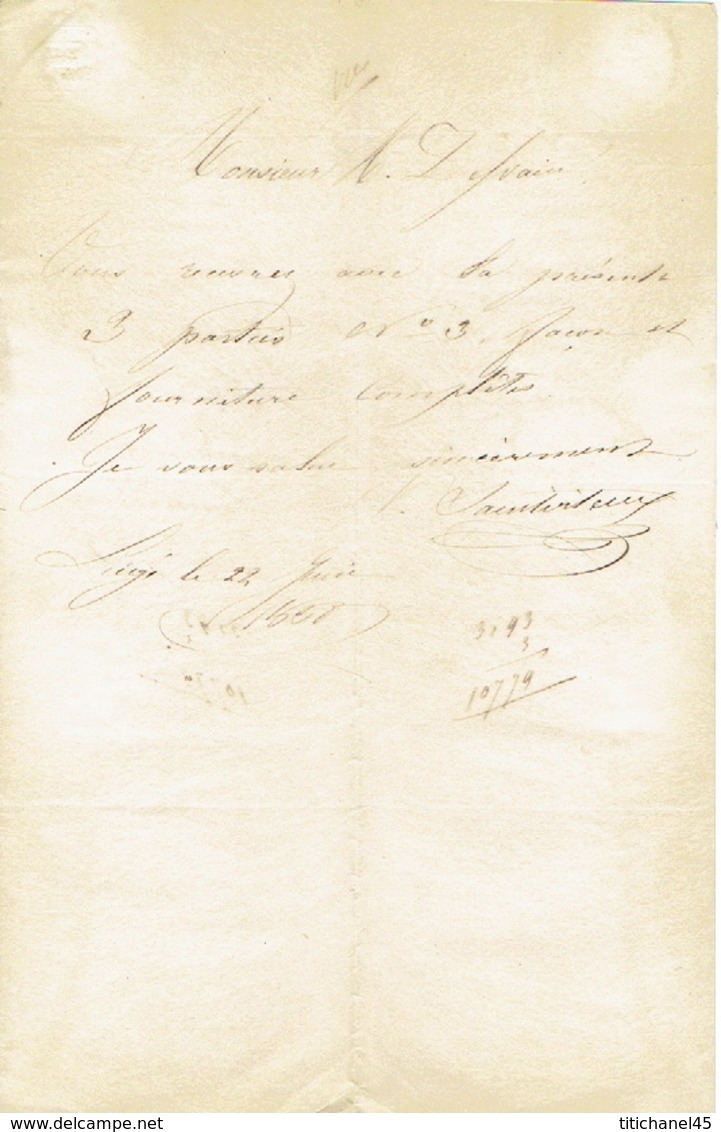 Monsieur H. Dessain
Vous recevrez avec la présente
3 parties N° 3, façon et
fourniture complètes
Je vous salue sincèrement
Liège le 22 Juin
3593
3
10779
delcampe.net
titichanel45